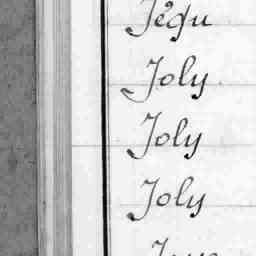 Jégu
Joly
Joly
Joly